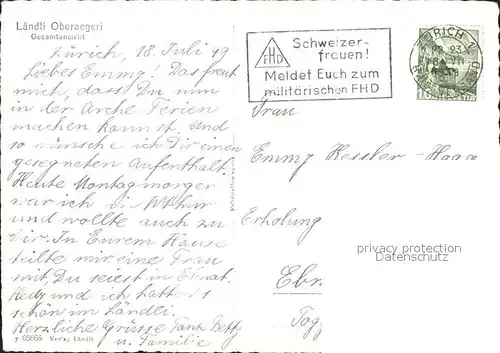 Ländli Oberaegeri
Gesamtansicht
Zürich, 18. Juli 19
Liebes Emmy! Das freut
mich, dass Du nun
in der Arche Ferien
machen kannst. Und
so wünsche ich Dir einen
gesegneten Aufenthalt.
Heute Montagmorgen
war ich in
und wollte auch zu
Dir. In Eurem Hause
teilte mir eine Frau
mit, Du seiest in Ebnat.
Hedy und ich hatten's
schön im Ländli.
Herzliche Grüsse Tante Betty
u. Familie
7 05666 Verlag Ländli
FHD
Schweizer-
frauen!
Meldet Euch zum
militärischen FHD
ZÜRICH 1
Frau
Emmy Kessler-Haara
Erholung
privacy protection
Datenschutz
Ebn
Togg